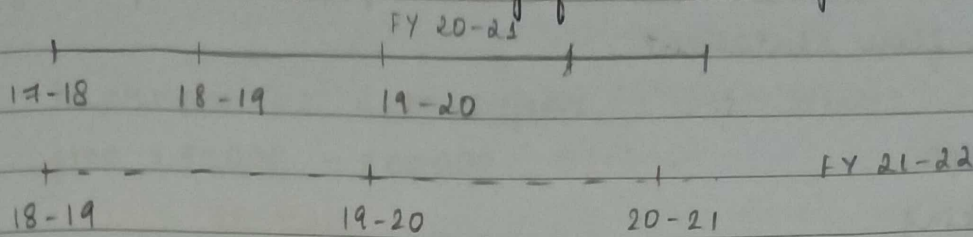 FY 20-21
17-18 18-19 19-20
FY 21-22
18-19 19-20 20-21